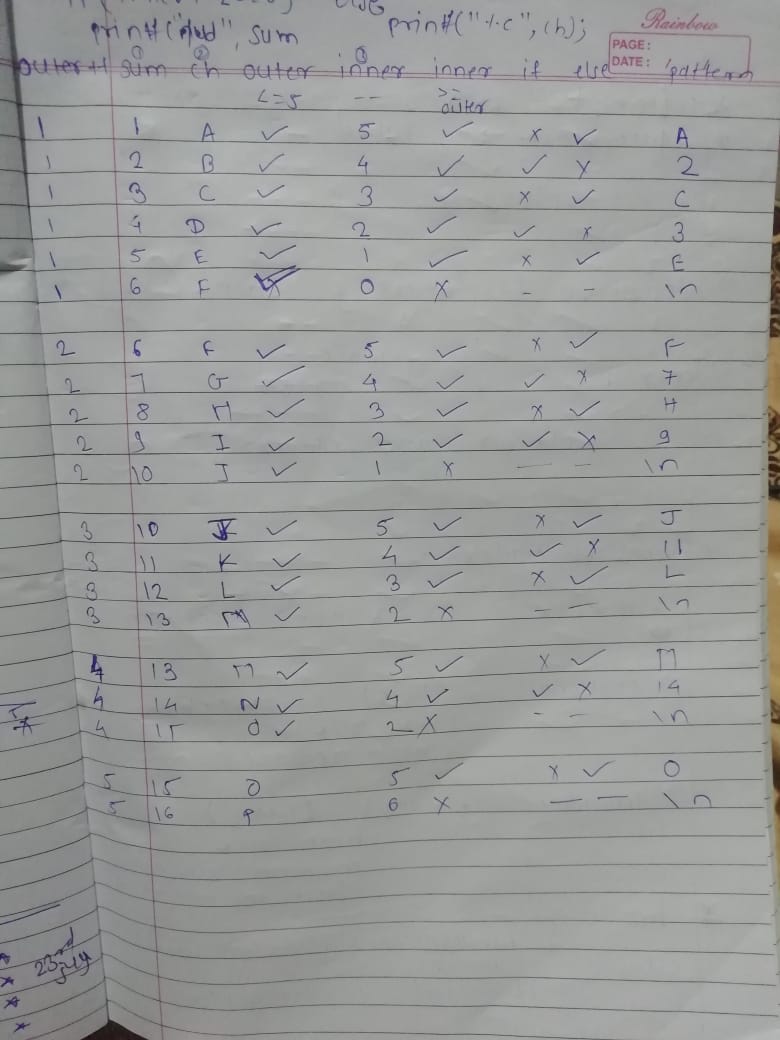 else
printf("%d", sum
printf("%c", ch);
Rainbow
PAGE:
DATE:
outer++ sum ch outer inner inner if else pattern
<=5 -- >=
outer
1 1 A ✓ 5 ✓ x ✓ A
1 2 B ✓ 4 ✓ ✓ x 2
1 3 C ✓ 3 ✓ x ✓ C
1 4 D ✓ 2 ✓ ✓ x 3
1 5 E ✓ 1 ✓ x ✓ E
1 6 F ✓ 0 x - - \n
2 6 F ✓ 5 ✓ x ✓ F
2 7 G ✓ 4 ✓ ✓ x 7
2 8 H ✓ 3 ✓ x ✓ H
2 9 I ✓ 2 ✓ ✓ x 9
2 10 J ✓ 1 x - - \n
3 10 J ✓ 5 ✓ x ✓ J
3 11 K ✓ 4 ✓ ✓ x 11
3 12 L ✓ 3 ✓ x ✓ L
3 13 M ✓ 2 x - - \n
4 13 M ✓ 5 ✓ x ✓ M
4 14 N ✓ 4 ✓ ✓ x 14
4 15 O ✓ 2 x - - \n
5 15 O 5 ✓ x ✓ O
5 16 P 6 x - - \n
23rd
July